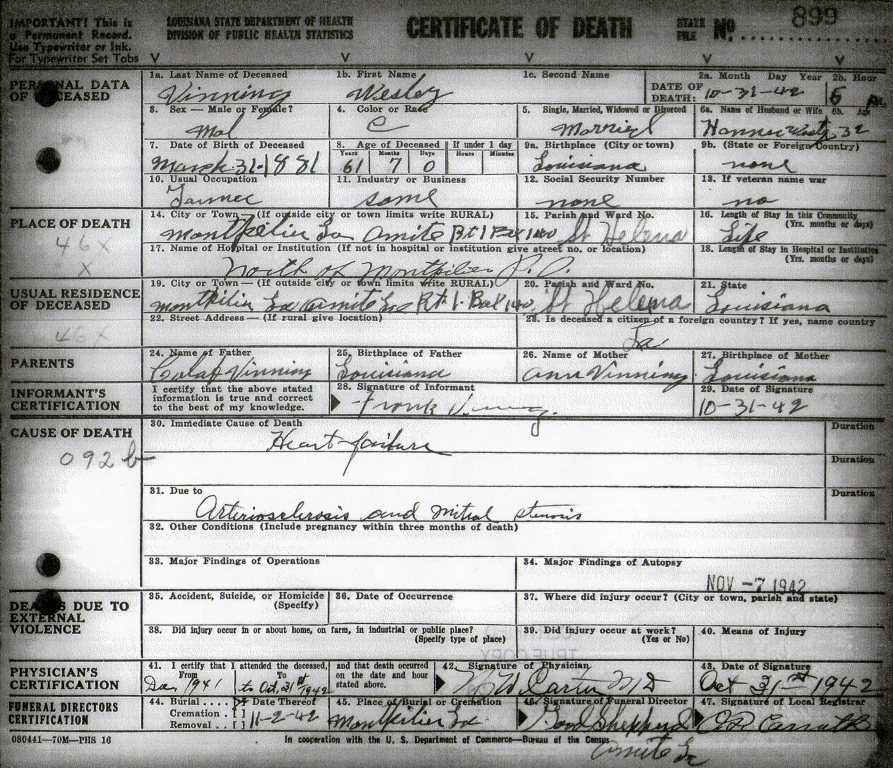 IMPORTANT! This is
a Permanent Record.
Use Typewriter or Ink.
For Typewriter Set Tabs
LOUISIANA STATE DEPARTMENT OF HEALTH
DIVISION OF PUBLIC HEALTH STATISTICS
CERTIFICATE OF DEATH
STATE
FILE No. 899
V V V V V
PERSONAL DATA
OF DECEASED
1a. Last Name of Deceased
Vinning
1b. First Name
Wesley
1c. Second Name
DATE OF
DEATH:
2a. Month Day Year
10-31-42
2b. Hour
6
3. Sex — Male or Female?
Mal
4. Color or Race
C
5. Single, Married, Widowed or Divorced
Married
6a. Name of Husband or Wife
6b. Age
32
7. Date of Birth of Deceased
March 31-1881
8. Age of Deceased
Years Months Days
61 7 0
If under 1 day
Hours Minutes
9a. Birthplace (City or town)
Louisiana
9b. (State or Foreign Country)
none
10. Usual Occupation
Farmer
11. Industry or Business
same
12. Social Security Number
none
13. If veteran name war
no
PLACE OF DEATH
46X
X
14. City or Town — (If outside city or town limits write RURAL)
Montpelier La Amite Rt 1 Box 140
15. Parish and Ward No.
St Helena
16. Length of Stay in this Community
(Yrs. months or days)
Life
17. Name of Hospital or Institution (If not in hospital or institution give street no. or location)
North of Montpelier P.O.
18. Length of Stay in Hospital or Institution
(Yrs. months or days)
USUAL RESIDENCE
OF DECEASED
46X
19. City or Town — (If outside city or town limits write RURAL)
Montpelier La Amite La Rt. 1-Box 140
20. Parish and Ward No.
St Helena
21. State
Louisiana
22. Street Address — (If rural give location)
23. Is deceased a citizen of a foreign country? If yes, name country
La
PARENTS
24. Name of Father
Vinning
25. Birthplace of Father
Louisiana
26. Name of Mother
Ann Vinning
27. Birthplace of Mother
Louisiana
INFORMANT'S
CERTIFICATION
I certify that the above stated
information is true and correct
to the best of my knowledge.
28. Signature of Informant
Frank Vinning
29. Date of Signature
10-31-42
CAUSE OF DEATH
092b
30. Immediate Cause of Death
Heart failure
Duration
Duration
31. Due to
Arteriosclerosis and mitral stenosis
Duration
32. Other Conditions (Include pregnancy within three months of death)
33. Major Findings of Operations
34. Major Findings of Autopsy
NOV -7 1942
DEATHS DUE TO
EXTERNAL
VIOLENCE
35. Accident, Suicide, or Homicide
(Specify)
36. Date of Occurrence
37. Where did injury occur? (City or town, parish and state)
38. Did injury occur in or about home, on farm, in industrial or public place?
(Specify type of place)
39. Did injury occur at work?
(Yes or No)
40. Means of Injury
TRUE COPY
PHYSICIAN'S
CERTIFICATION
41. I certify that I attended the deceased,
From
1941
to Oct, 31st 1942
and that death occurred
on the date and hour
stated above.
42. Signature of Physician
W Carter MD
43. Date of Signature
Oct 31st 1942
FUNERAL DIRECTORS
CERTIFICATION
44. Burial ... [X]
Cremation . [ ]
Removal .. [ ]
Date Thereof
11-2-42
45. Place of Burial or Cremation
Montpelier La.
46. Signature of Funeral Director
Sheppard
Amite La
47. Signature of Local Registrar
080441—70M—PHS 16
In cooperation with the U. S. Department of Commerce—Bureau of the Census